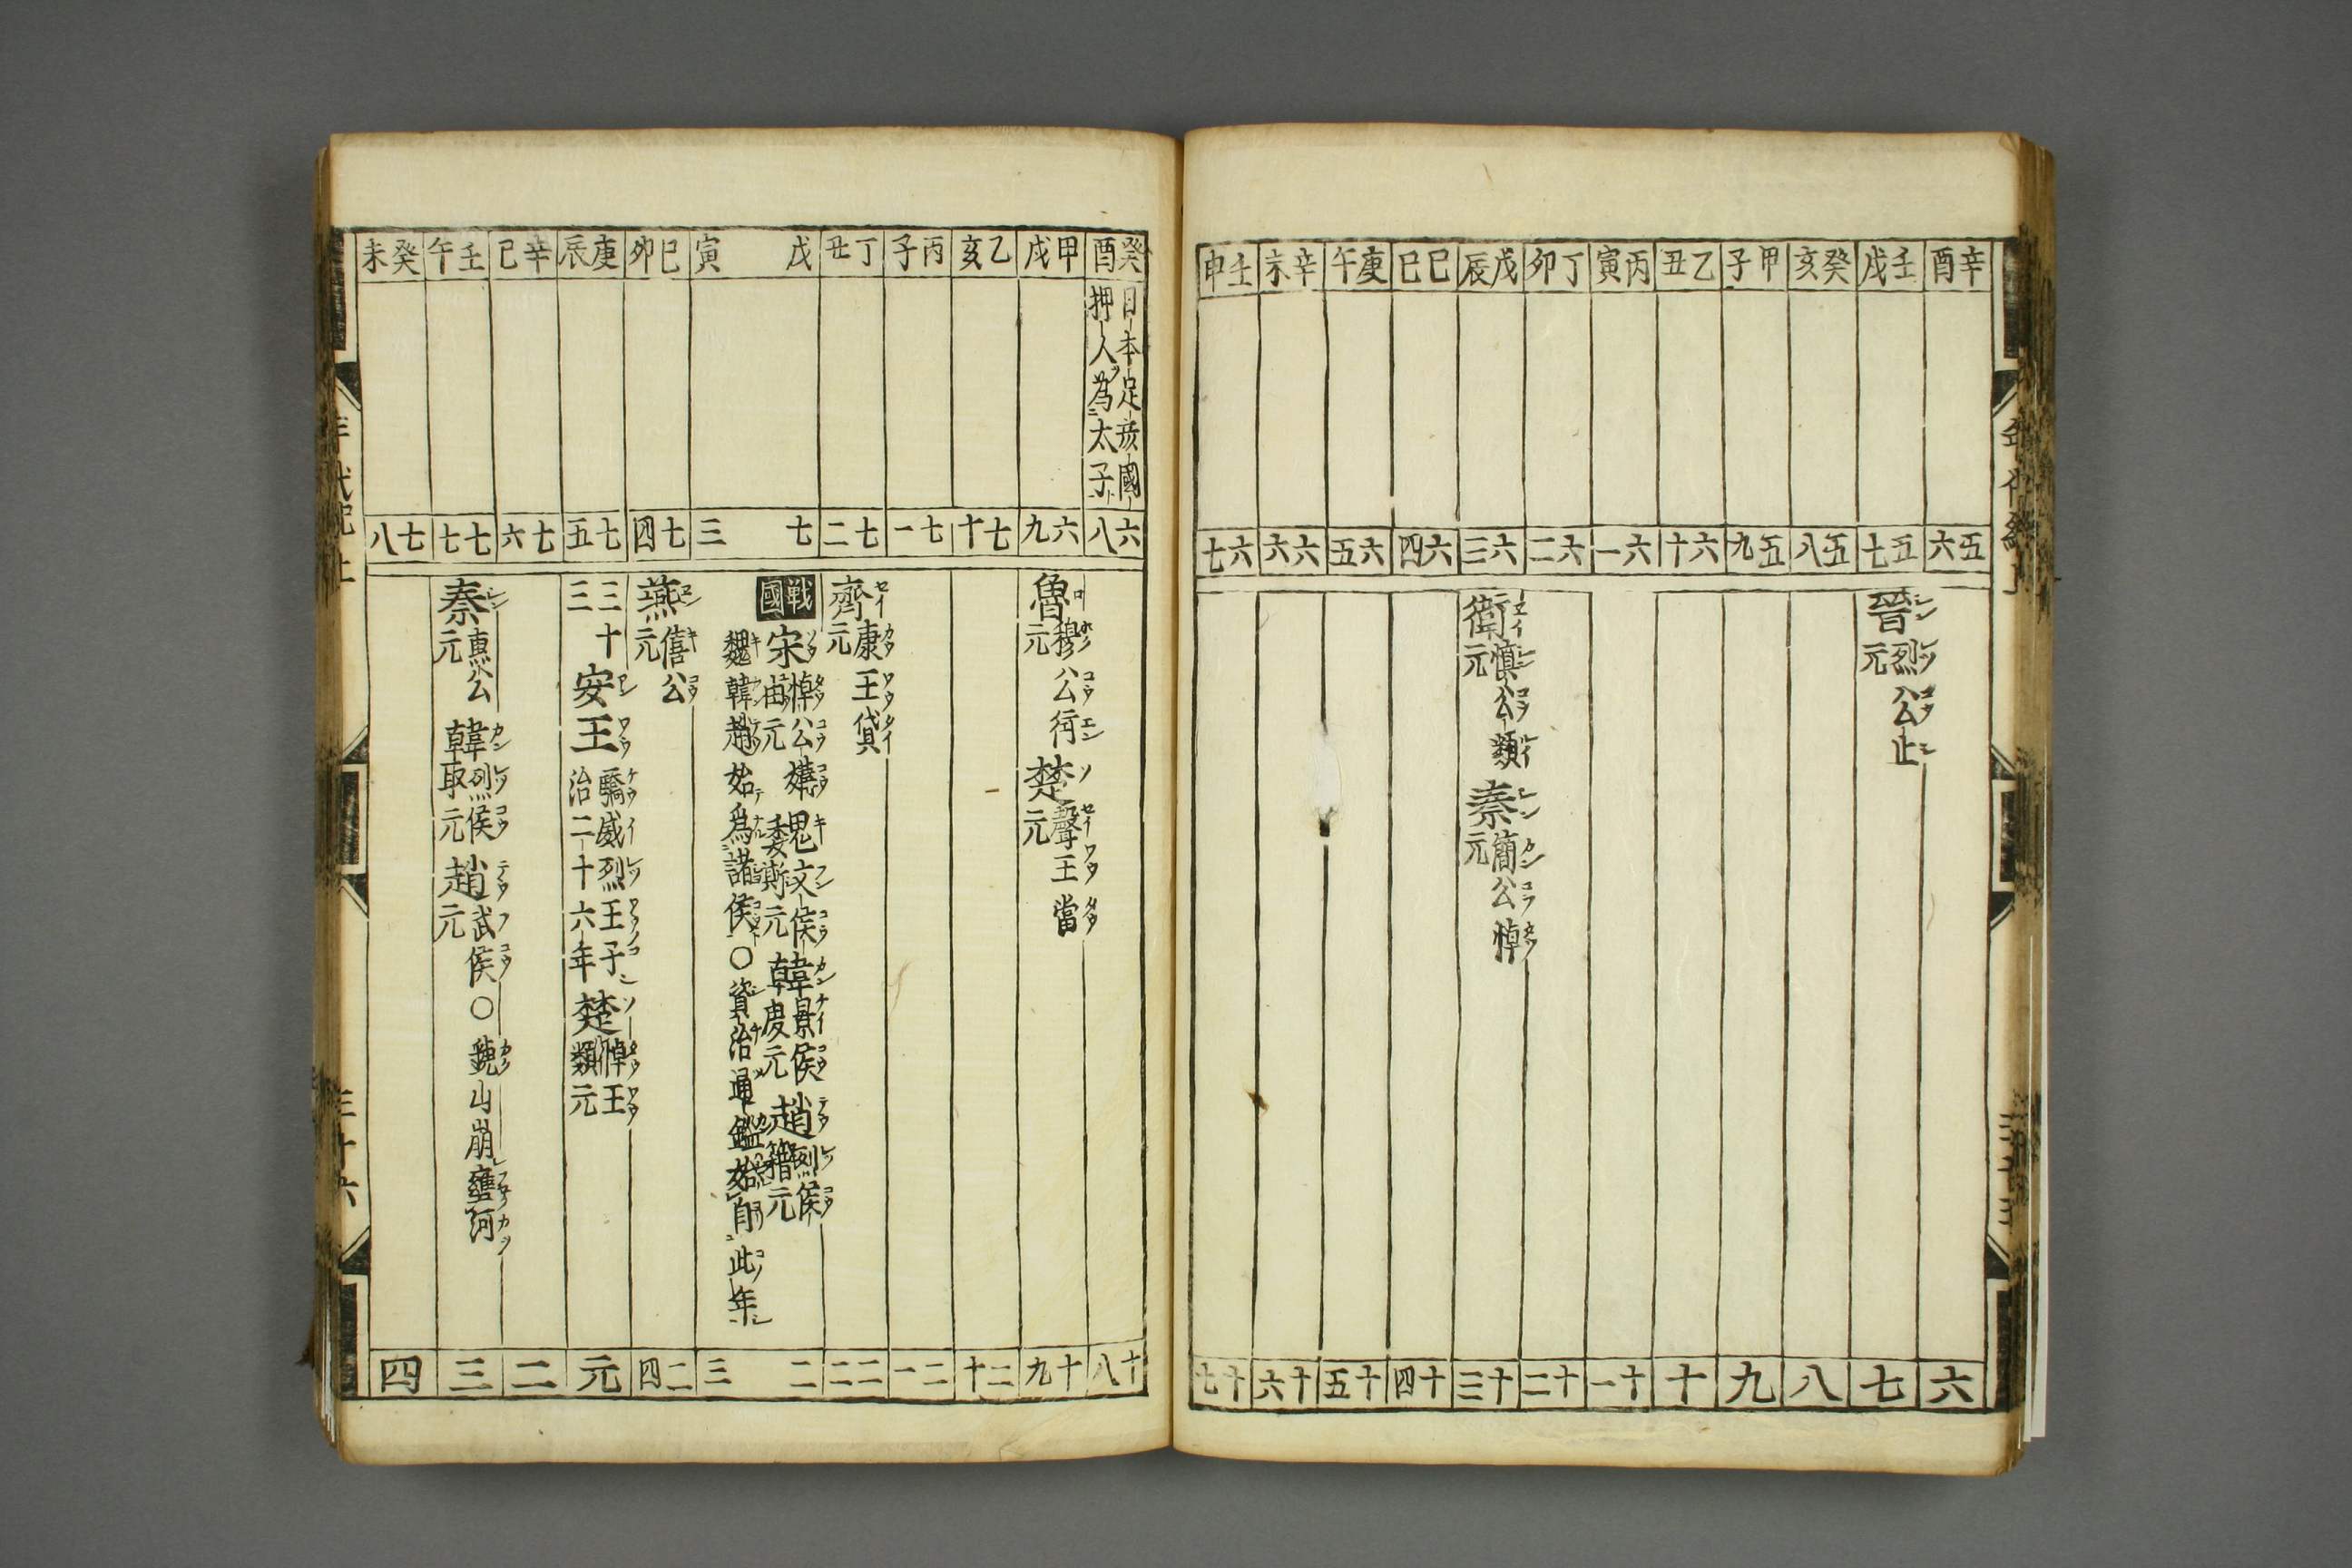 辛酉
五六
六
壬戌
五七
晉烈公止元
シンレツコウシ
七
癸亥
五八
八
甲子
五九
九
乙丑
六十
十
丙寅
六一
十一
丁卯
六二
十二
戊辰
六三
衛慎公頽元
秦簡公悼元
十三
己巳
六四
十四
庚午
六五
十五
辛未
六六
十六
壬申
六七
十七
癸酉
日本足彦國
押人為太子
六八
十八
甲戌
六九
魯穆公衍元
楚聲王當元
十九
乙亥
七十
二十
丙子
七一
二一
丁丑
七二
齊康王貸元
二二
戊寅
七三
戰國
宋悼公購由元
魏文侯斯元
韓景侯虔元
趙烈侯籍元
魏韓趙始爲諸侯○資治通鑑始自此年
二三
己卯
七四
燕僖公元
二四
庚辰
七五
三十三
安王驕威烈王子
治二十六年
楚悼王類元
元
辛巳
七六
二
壬午
七七
秦惠公元
韓烈侯取元
趙武侯元
○虢山崩壅河
三
癸未
七八
四
年代記上
三十六